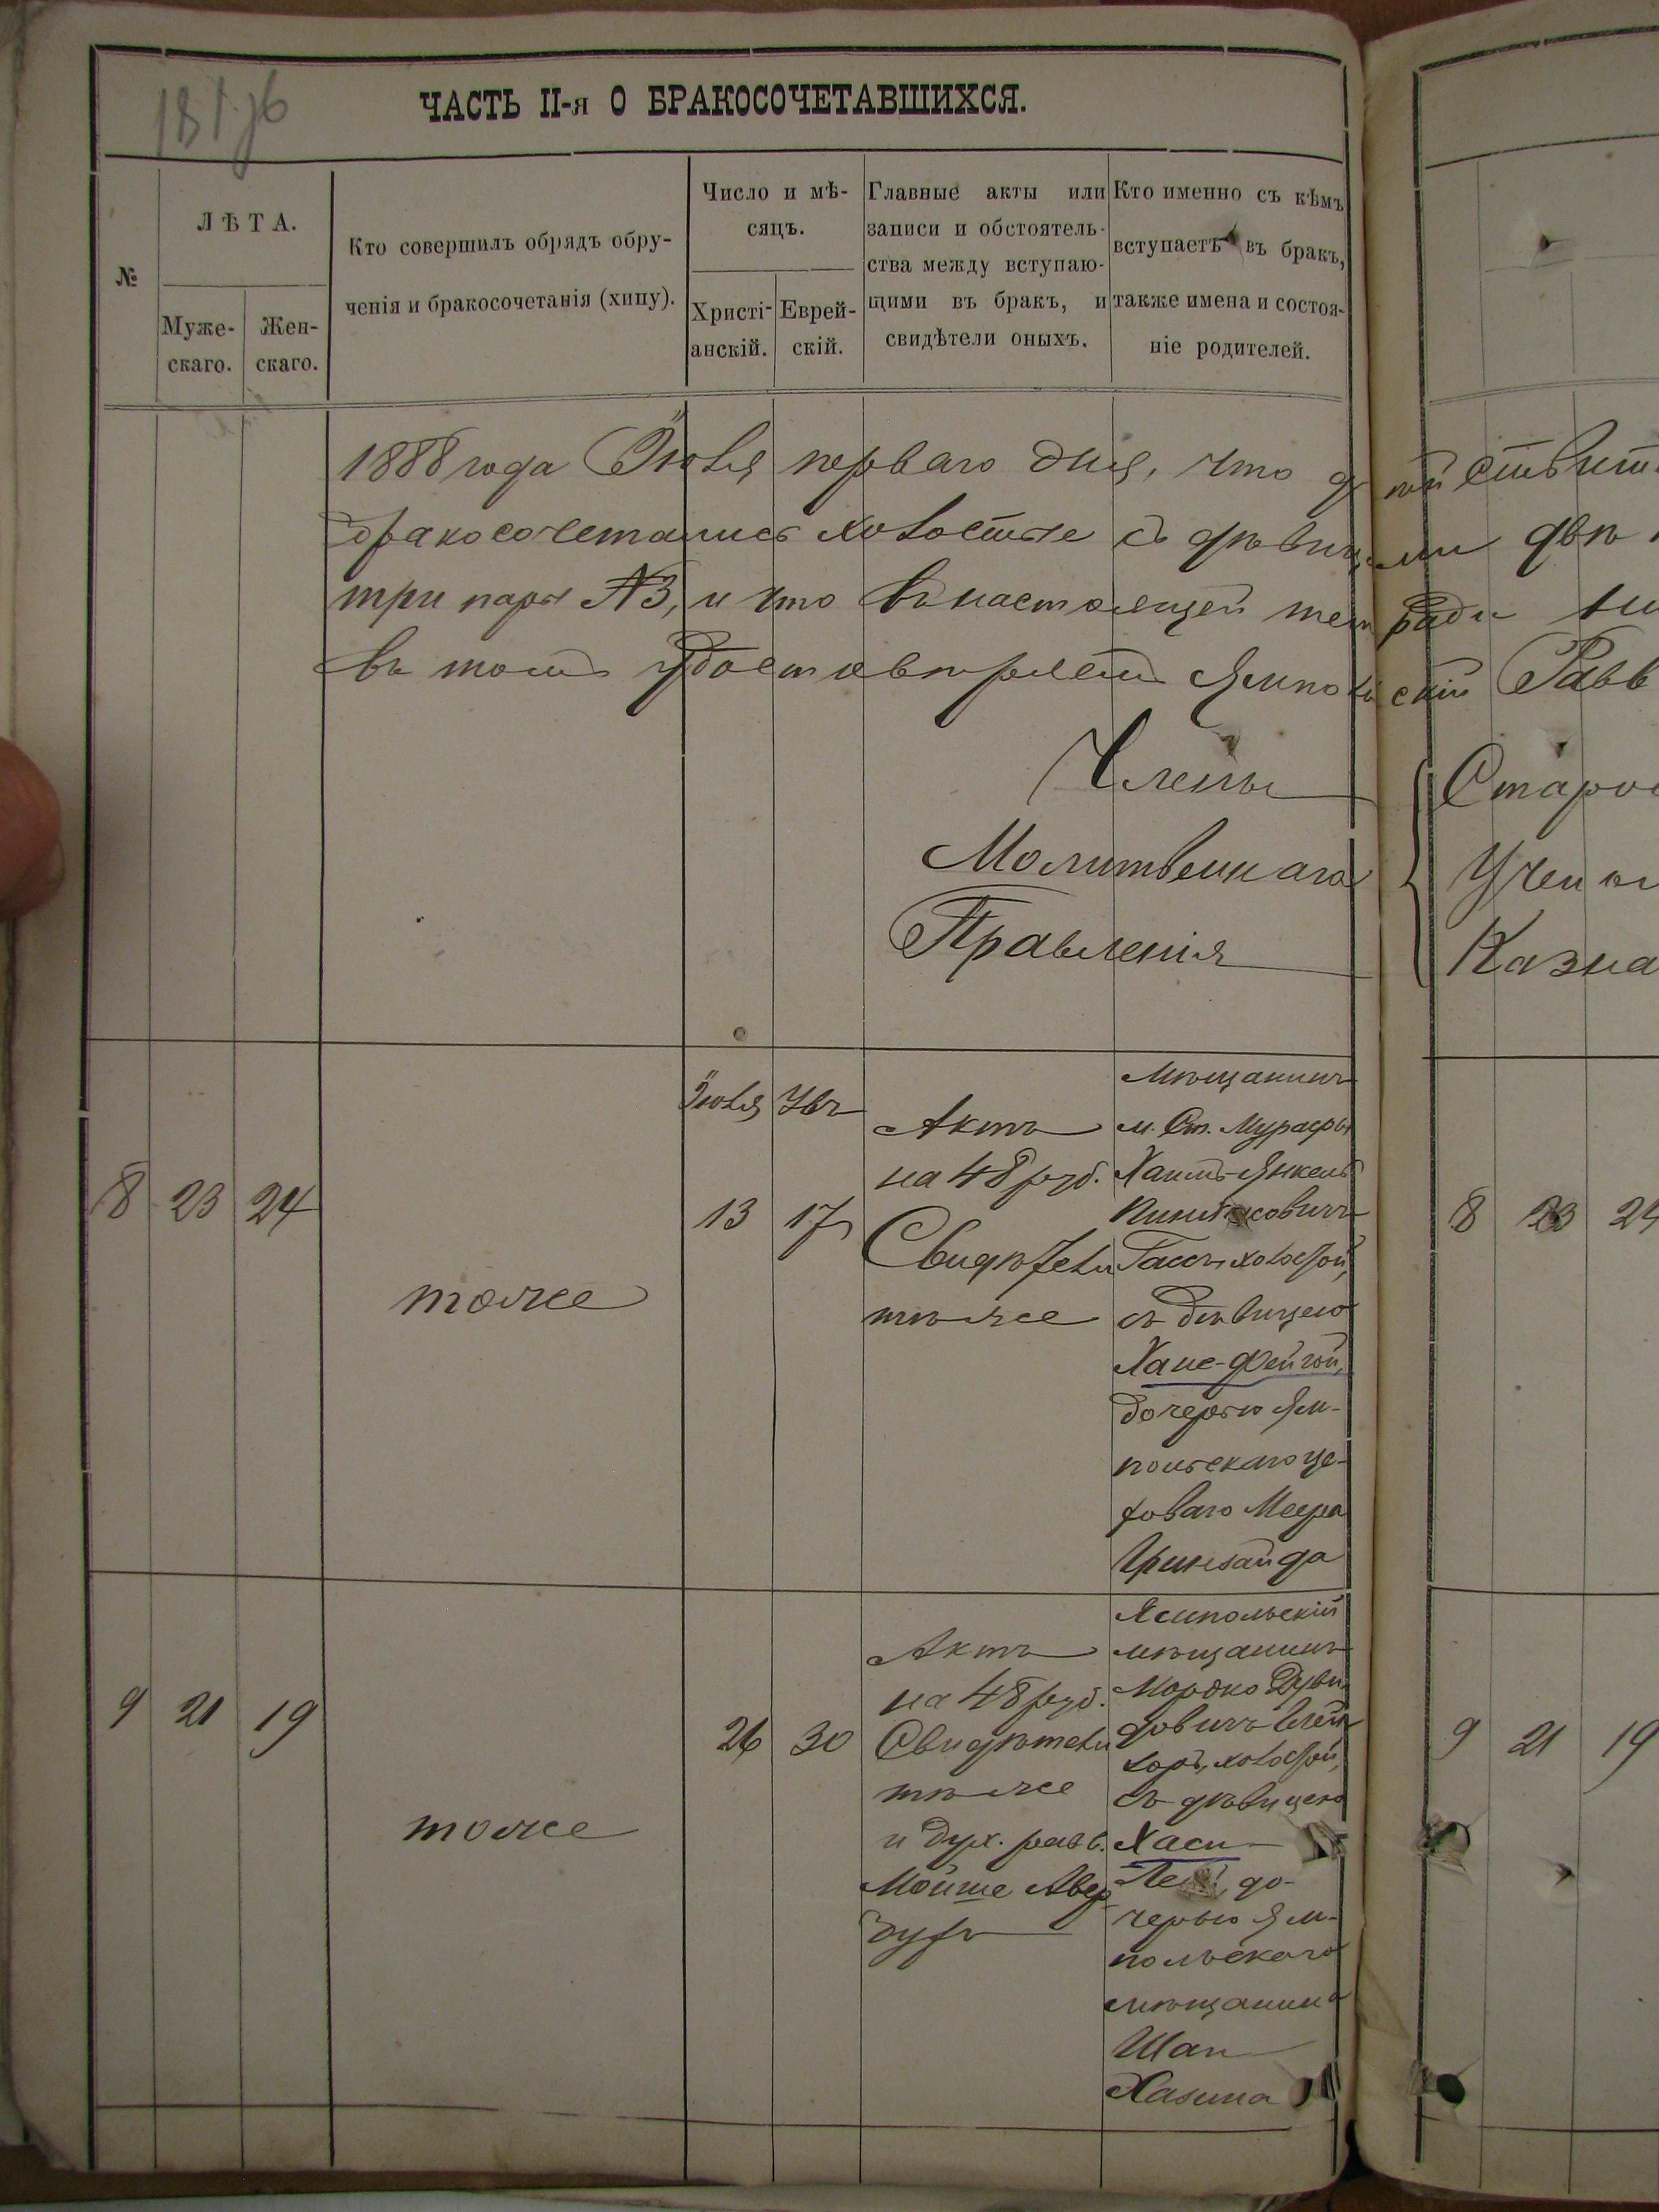 181 об
ЧАСТЬ II-я О БРАКОСОЧЕТАВШИХСЯ.
№
ЛѢТА.
Муже-
скаго.
Жен-
скаго.
Кто совершилъ обрядъ обру-
ченія и бракосочетанія (хипу).
Число и мѣ-
сяцъ.
Христі-
анскій.
Еврей-
скій.
Главные акты или
записи и обстоятель-
ства между вступаю-
щими въ бракъ, и
свидѣтели оныхъ.
Кто именно съ кѣмъ
вступаетъ въ бракъ,
также имена и состоя-
ніе родителей.
1888 года Іюля перваго дня, что дѣйствит
бракосочетались холостые съ дѣвицами двѣ
три пары №3, и что въ настоящей тетради
въ томъ удостовѣряетъ Ямпольскій Равв
Члены
Молитвеннаго
Правленія
Старо
Учены
Казна
8
23
24
тоже
Іюля
13
17
Актъ
на 48 руб.
Свидѣтели
тѣ же
Мѣщанинъ
м. Ст. Мурафы
Хаимъ-Янкель
холостой,
съ дѣвицею
Хане-Фейгой,
дочерью Ям-
польскаго це-
хового Меера
8
23
24
9
21
19
тоже
26
30
Актъ
на 48 руб.
Свидѣтели
тѣ же
и дух. равв.
Мойше Авер
бухъ
Ямпольскій
мѣщанинъ
Мордко Дуви-
довичъ
холостой,
съ дѣвицею
Хаси
до-
черью Ям-
польскаго
мѣщанина
Хазина
9
21
19